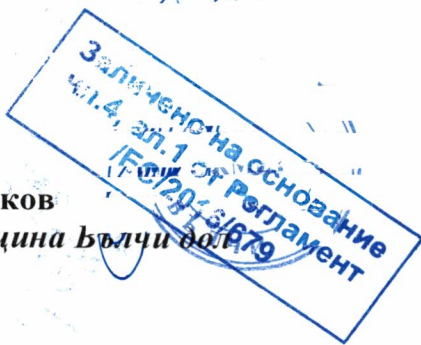 Заличено на основание
чл.4, ал.1 от Регламент
/ЕС/2016/679
ков
щина Вълчи дол